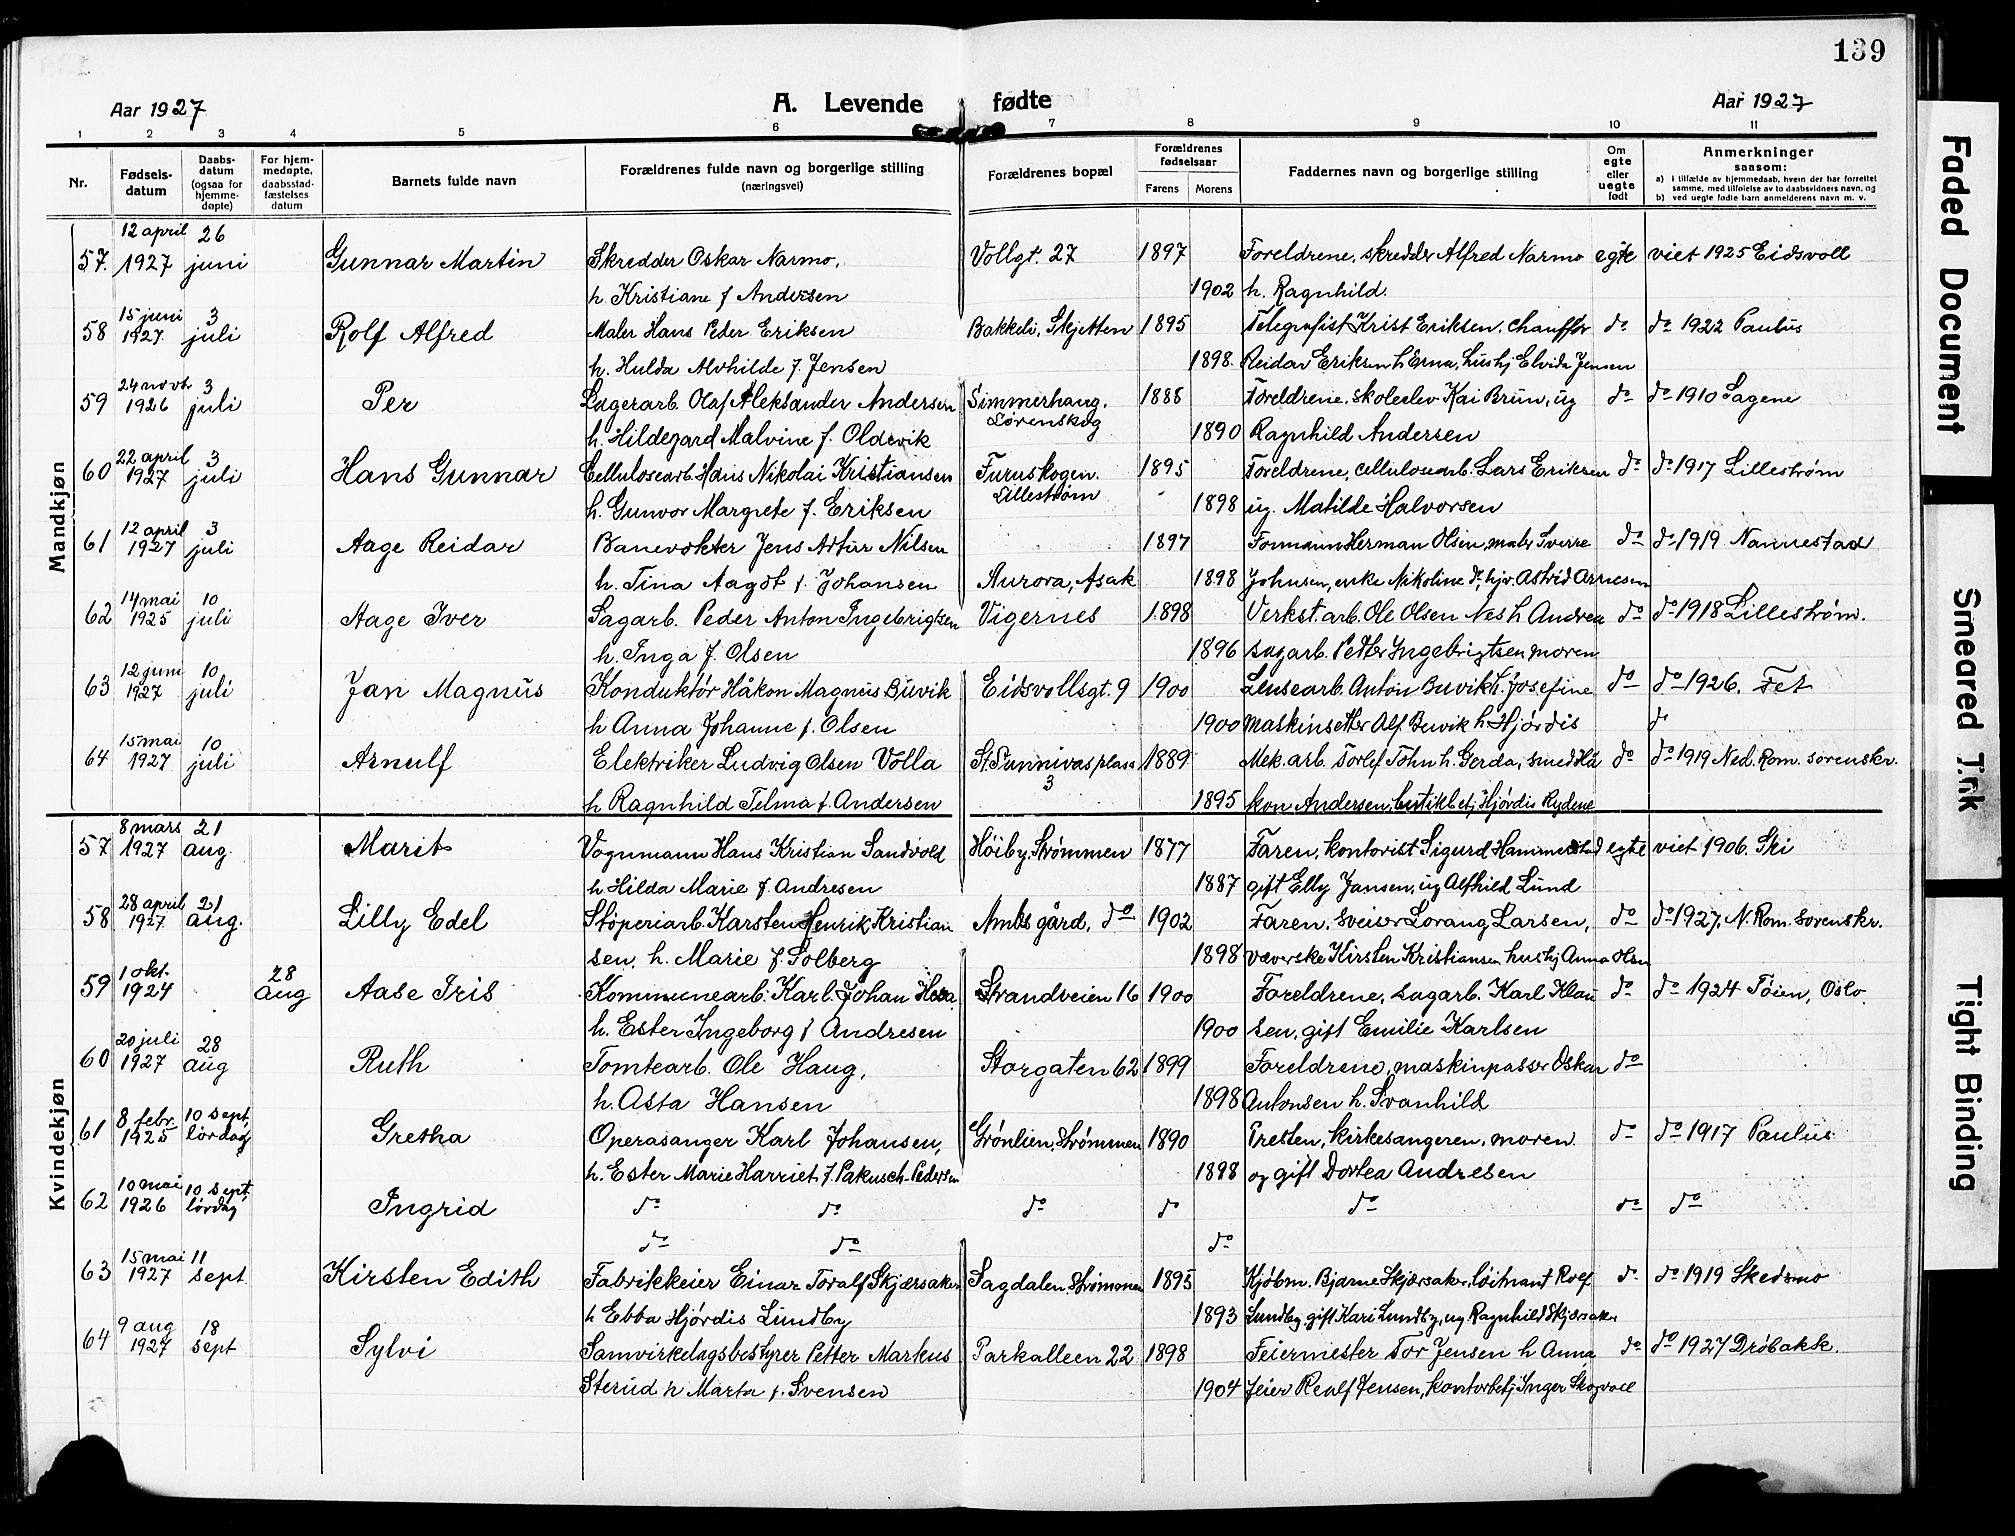 139
Aar 1927 A. Levende fødte Aar 1927
1 2 3 4 5 6 7 8 9 10 11
Nr. Fødselsdatum Daabsdatum (ogsaa for hjemmedøpte) For hjemmedøpte, daabsstadfæstelses datum Barnets fulde navn Forældrenes fulde navn og borgerlige stilling (næringsvei) Forældrenes bopæl Forældrenes fødselsaar Farens Morens Faddernes navn og borgerlige stilling Om egte eller uegte født Anmerkninger saasom:
a) i tilfælde av hjemmedaab, hvem der har forrettet samme, med tilføielse av to daabsvidners navn, og
b) ved uegte fødte barn anmelderens navn m. v.
Mandkjøn
57. 12 april 1927 26 juni Gunnar Martin Skredder Oskar Narmo, Vollgt. 27 1897 Foreldrene, skredder Alfred Narmo egte viet 1925 Eidsvoll
h. Kristiane f Andersen 1902 h. Ragnhild.
58 15 juni 1927. 3 juli Rolf Alfred Maler Hans Peder Eriksen Bakkeli, Skjetten 1895 Telegrafist Krist Eriksen, chauffør do do 1922 Paulus
h. Hulda Alvhilde f. Jensen 1898. Reidar Eriksen h Erna, hushj Elvida Jensen
59 24 novbr 1926 3 juli Per Lagerarb. Olaf Aleksander Andersen Simmerhaug, Lørenskog 1888 Foreldrene, skoleelev Kai Brun, ug do do 1910 Sagene
h. Hildegard Malvine f. Oldervik 1890 Ragnhild Andersen
60 22 april 1927 3 juli Hans Gunnar Cellulosearb. Hans Nikolai Kristiansen Furuskogen. Lillestrøm 1895 Foreldrene, cellulosearb. Lars Eriksen do do 1917 Lillestrøm
h. Gunvor Margrete f. Eriksen 1898 ug. Matilde Halvorsen
61 12 april 1927 3 juli Aage Reidar Banevokter Jens Artur Nilsen 1897 Formann Herman Olsen, maler Sverre do do 1919 Nannestad
h. Tina Aagot f. Johansen Aurora, Asak 1898 Johnsen, enke Nikoline do, hjv. Astrid Arnesen
62 14 mai 1925 10 juli Aage Iver Sagarb. Peder Anton Ingebrigtsen Vigernes 1898 Verkst. arb. Ole Olsen Nes h Andrea do do 1918 Lillestrøm.
h. Inga f. Olsen 1896 sagarb. Petter Ingebrigtsen, moren
63 12 juni 1927 10 juli Jan Magnus Konduktør Håkon Magnus Buvik Eidsvollsgt. 9 1900 Lensearb. Anton Buvik h. Josefine do do 1926. Fet
h Anna Johanne f. Olsen 1900 maskinsetter Alf Buvik h. Hjørdis d
64 15 mai 1927 10 juli Arnulf Elektriker Ludvig Olsen Volla St. Sunnivas plass 3 1889 Mek. arb. Torlef Tohn h. Gerda, smed Hå do do 1919 Ned. Rom. sorenskr.
h Ragnhild Telma f. Andersen 1895 kon Andersen, butikbetj Hjørdis Rydene
Kvindekjøn
57 8 mars 1927 21 aug. Marit Vognmann Hans Kristian Sandvold Høiby, Strømmen 1877 Faren, kontorist Sigurd Hammerstad egte viet 1906. Ski
h Hilda Marie f. Andresen 1887 gift Elly Jansen, ug Alfhild Lund
58 28 april 1927 21 aug. Lilly Edel Støperiarb. Karsten Henrik Kristian Ambs gård, do 1902 Faren, sveiser Lorang Larsen, do do 1927, N. Rom. sorenskr.
sen, h. Marie f. Solberg 1898 væverske Kirsten Kristiansen hushj Anna Olsen
59 1 okt. 1924 28 aug Aase Iris Kommunearb. Karl Johan Strandveien 16 1900 Foreldrene, sagarb. Karl Klau do do 1924 Tøien, Oslo.
h. Ester Ingeborg f Andresen 1900 sen, gift Emilie Karlsen
60 20 juli 1927 28 aug Ruth Tomtearb. Ole Haug, Storgaten 62 1899 Foreldrene, maskinpasser Oskar do
h. Asta Hansen 1898 Antonsen h. Svanhild
61 8 febr. 1925 10 sept, lørdag Gretha Operasanger Karl Johansen, Grønlien, Strømmen 1890 Presten, kirkesangeren, moren do do 1917 Paulus
h. Ester Marie Harriet f. Pakusch-Pedersen 1898 og gift Dortea Andresen
62 10 mai 1926 10 sept, lørdag Ingrid do do do do do do do
do do do
63 15 mai 1927 11 sept Kirsten Edith Fabrikkeier Einar Toralf Skjærsaker Sagdalen, Strømmen 1895 Kjøbm. Bjarne Skjærsaker, løitnant Rolf do do 1919 Skedsmo
h Ebba Hjørdis Lundby 1893 Lundby, gift Kari Lundby, ug Ragnhild Skjærsaker
64 9 aug 1927 18 sept Sylvi Samvirkelagsbestyrer Petter Markus Parkalleen 22 1898 Feiermester Tor Jensen h Anna, do do 1927 Drøbaksk.
Sterud h Marta f. Svensen 1904 feier Realf Jensen, kontorbetj Inger Skogvoll
Faded Document
Smeared Ink
Tight Binding